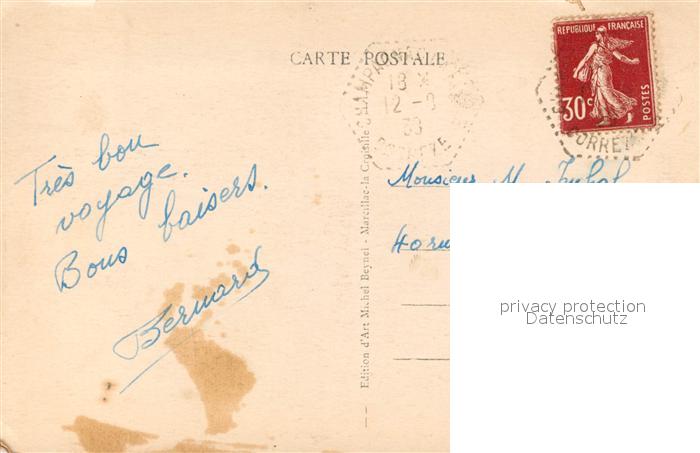 CARTE POSTALE
REPUBLIQUE FRANÇAISE
30c
POSTES
18
12-8
38
CORREZE
Très bon
voyage.
Bons baisers.
Bernard
Edition d'Art Michel Beynel - Marcillac-la Croisille
Monsieur M.
privacy protection
Datenschutz